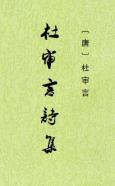 〔唐〕杜审言
杜审言詩集